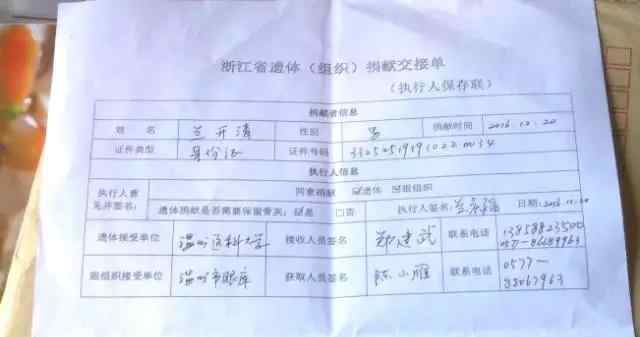 浙江省遗体（组织）捐献交接单
（执行人保存联）
捐献者信息
姓 名 兰开清 性别 男 捐献时间 2016.12.20
证件类型 身份证 证件号码
执行人信息
执行人意见并签名： 同意捐献 ☑遗体 ☑眼组织
遗体捐献是否需要保留骨灰：☑是 □否 执行人签名： 日期：
遗体接受单位 温州医科大学 接收人员签名 郑建武 联系电话 13858823500
0577-86689963
眼组织接受单位 温州市眼库 获取人员签名 陈小雁 联系电话 0577-
88067963